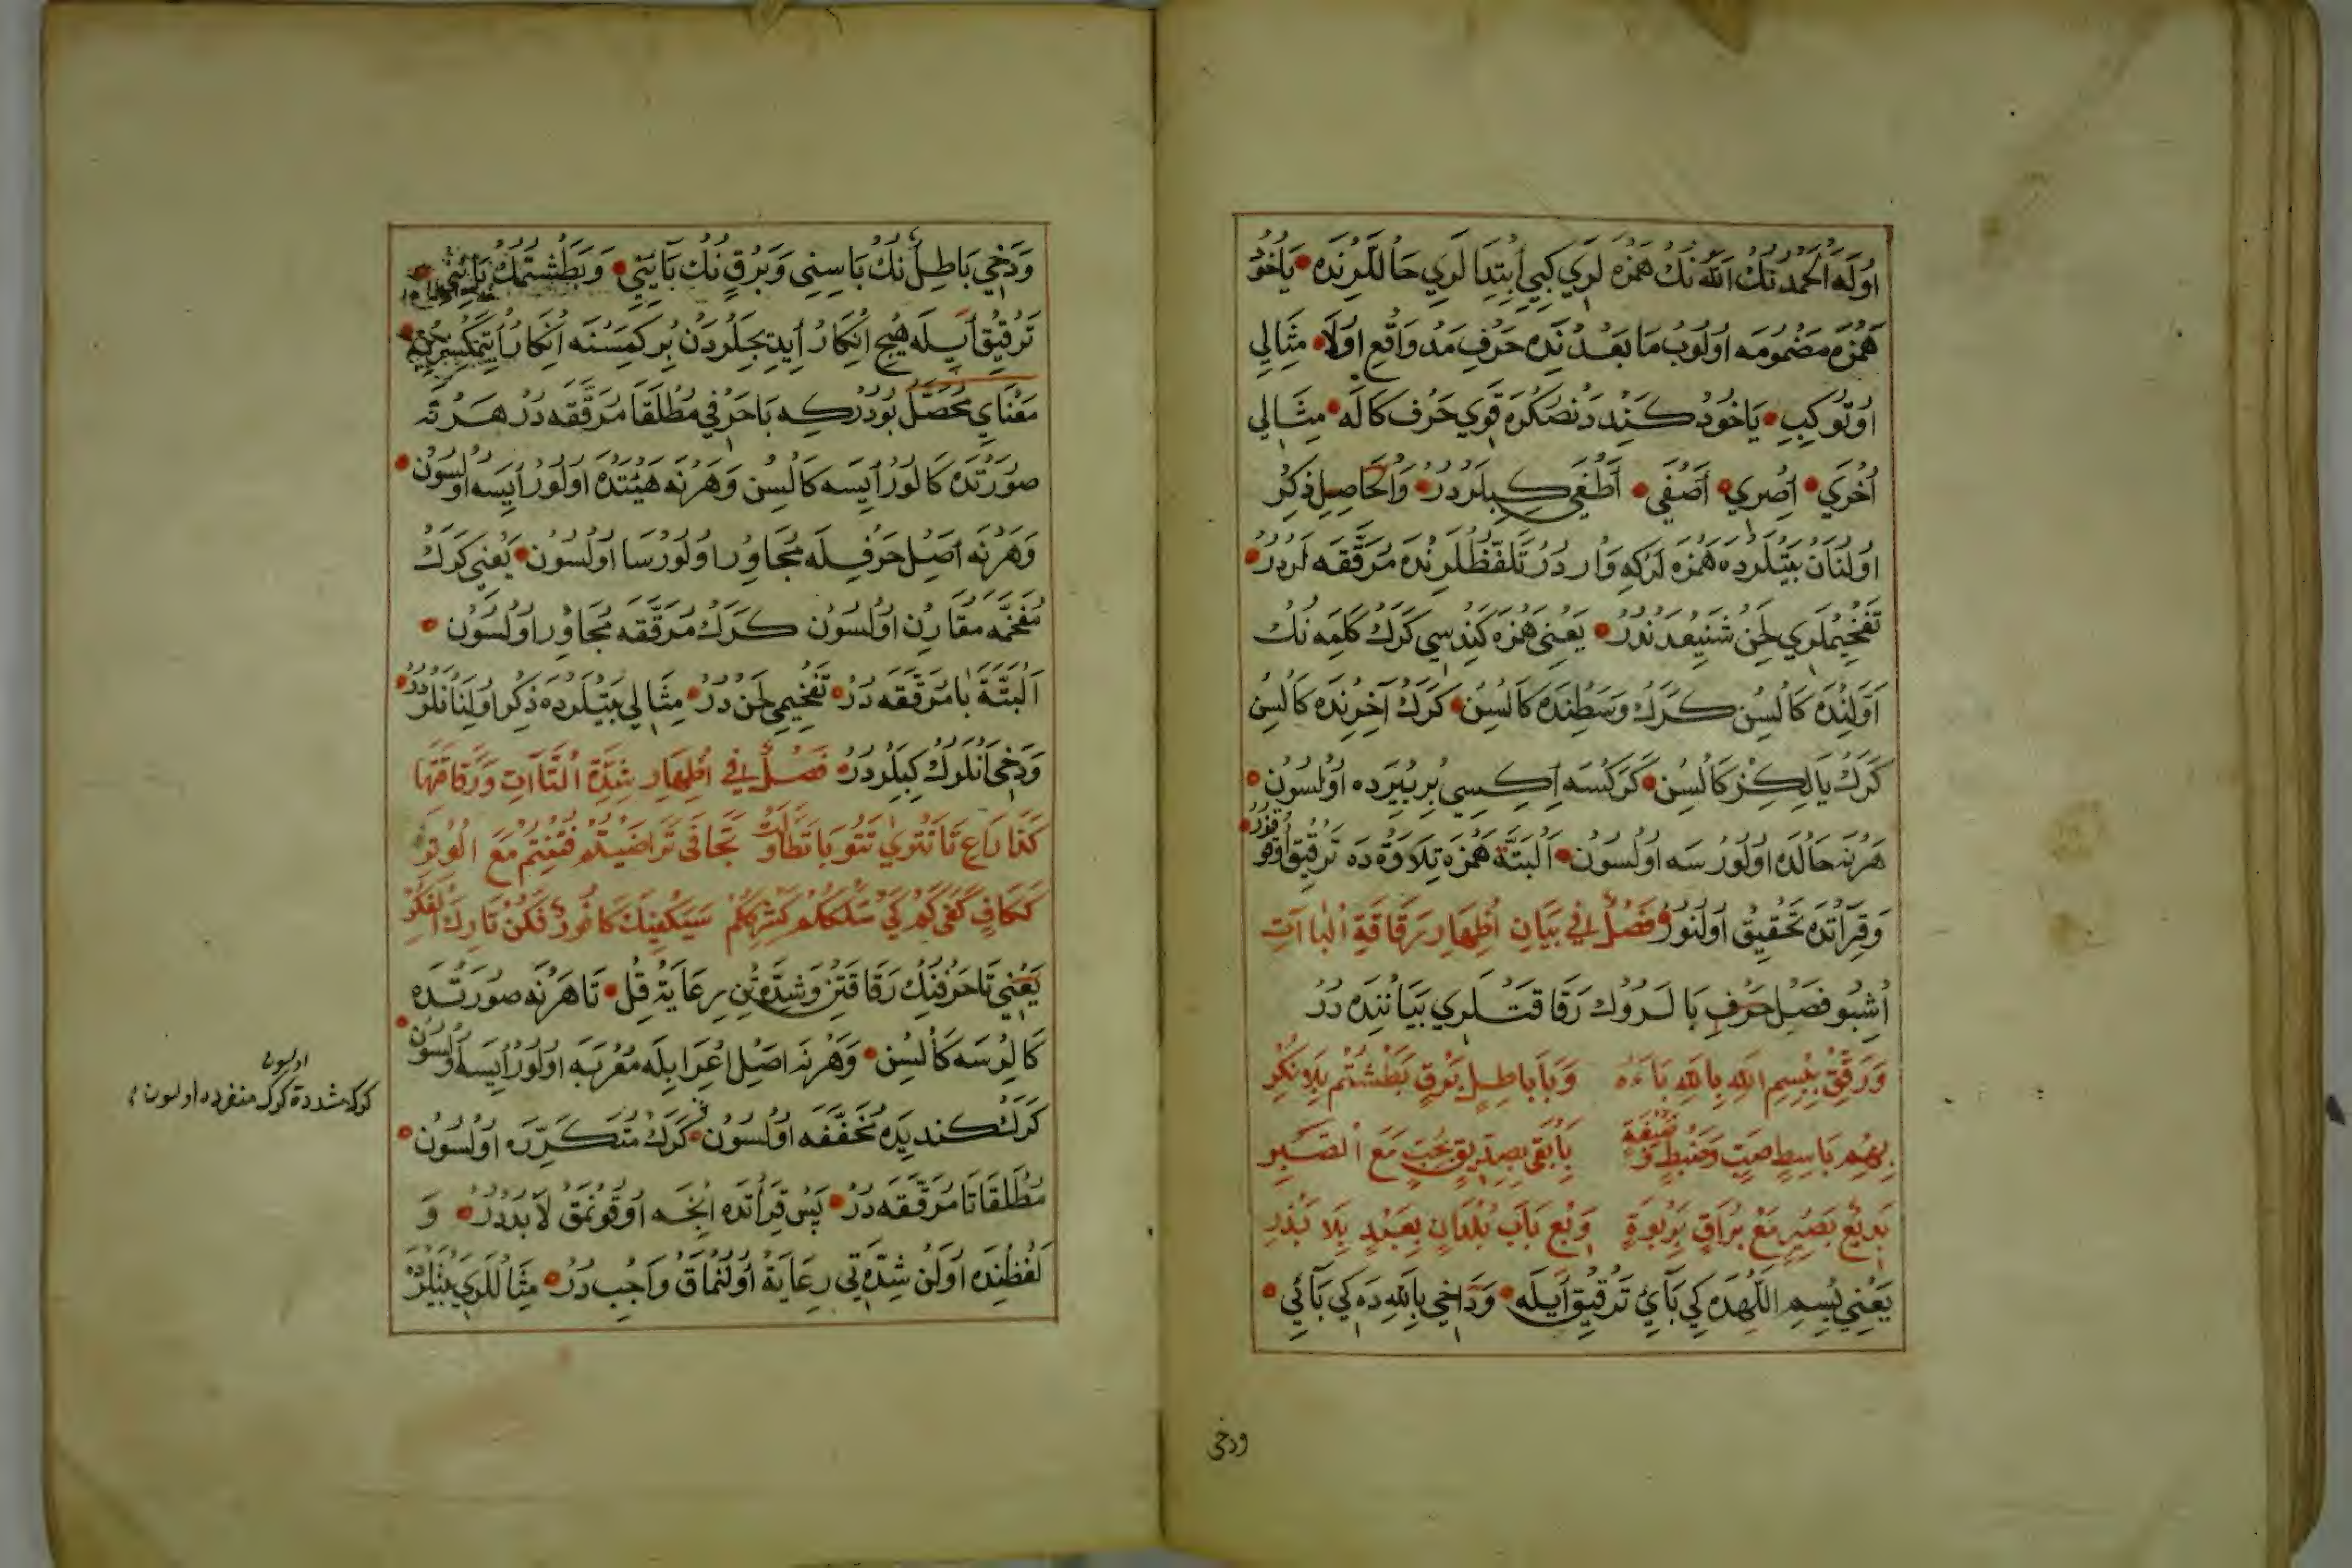 اوله الحمد نك الله نك همزه لري كبي ابتدا لري حاللرنده ياخود
همزه مضمومه اولوب ما بعدنده حرف مد واقع اولا مثالي
اوتوا كبي ياخود كنددنصكره قوي حرف كاله مثالي
اخري اصري اصفي اطغي كبيلردر والحاصل ذكر
اولنان بيتلرده همزه لركه واردر تلفظلرنده مرققه لردر
تفخيملري لحن شنيعدندر يعني همزه كندسي كرك كلمه نك
اولنده كالسن كرك وسطنده كالسن كرك آخرنده كالسن
كرك يالكز كالسن كركسه ايكيسي بر ييرده اولسون
هرنه حالده اولورسه اولسون البته همزه تلاوة ده ترقيق اوقنور
وقرأتده تحقيق اولنور فصل في بيان اظهار رقاقة الباآت
اشبو فصل حرف بالروك رقاقتلري بياننده در
ورقق ببسم الله بالله باءه وبا باطل برق بطشتم بلا نكر
بهم باسط صيت وضبط وضيفة بابقي بصديق بحب مع الصبر
بديع بصير مع براق بربوة وبع باب بلدان بعبد بلا بذر
يعني بسم اللهده كي بائي ترقيق ايله وداخي بالله ده كي بائي
ودخي
ودخي باطل نك باسني وبرق نك بائني وبطشتمك بائني
ترقيق ايله هيچ انكار ايديجلردن بر كمسنه انكار اتمكسزين
معناي محصل بودركه با حرفي مطلقا مرققه در هرنه
صورتده كالور ايسه كالسن وهرنه هيئتده اولور ايسه اولسون
وهرنه اصل حرفله مجاور اولورسا اولسون يعني كرك
مفخمه مقارن اولسون كرك مرققه مجاور اولسون
البتة با مرققه در تفخيمي لحن در مثالي بيتلرده ذكر اولنانلردر
ودخي انلرك كبيلردر فصل في اظهار شدة التاآت ورقاقتها
كتا راع تا تتوي تتوبا تطاول تجافي تراضيتم فتنتم مع الوتر
ككاف كفي كم كي سلككم كشرككم سيكفيك كافور فكن تارك الفكر
يعني تا حرفنك رقاقتن وشدتن رعاية قل تا هرنه صورتده
كالرسه كالسن وهرنه اصل اعرابله معربه اولور ايسه اولسون
كرك كنديده مخففه اولسون كرك متكرره اولسون
مطلقا تا مرققه در پس قرأتده انجه اوقونمق لابددر و
لفظنده اولن شدتي رعاية اولنماق واجب در مثاللري بيتلرده
اولسون
كرك مشددة كرك منفرده اولسون